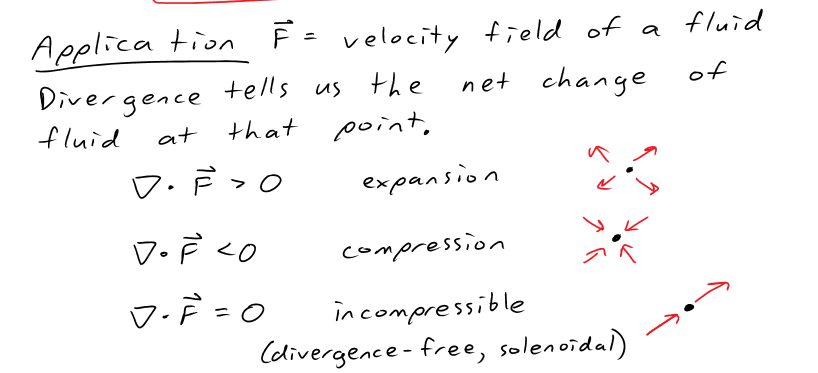 Application F⃗ = velocity field of a fluid
Divergence tells us the net change of
fluid at that point.
∇·F⃗ > 0 expansion
∇·F⃗ < 0 compression
∇·F⃗ = 0 incompressible
(divergence-free, solenoidal)